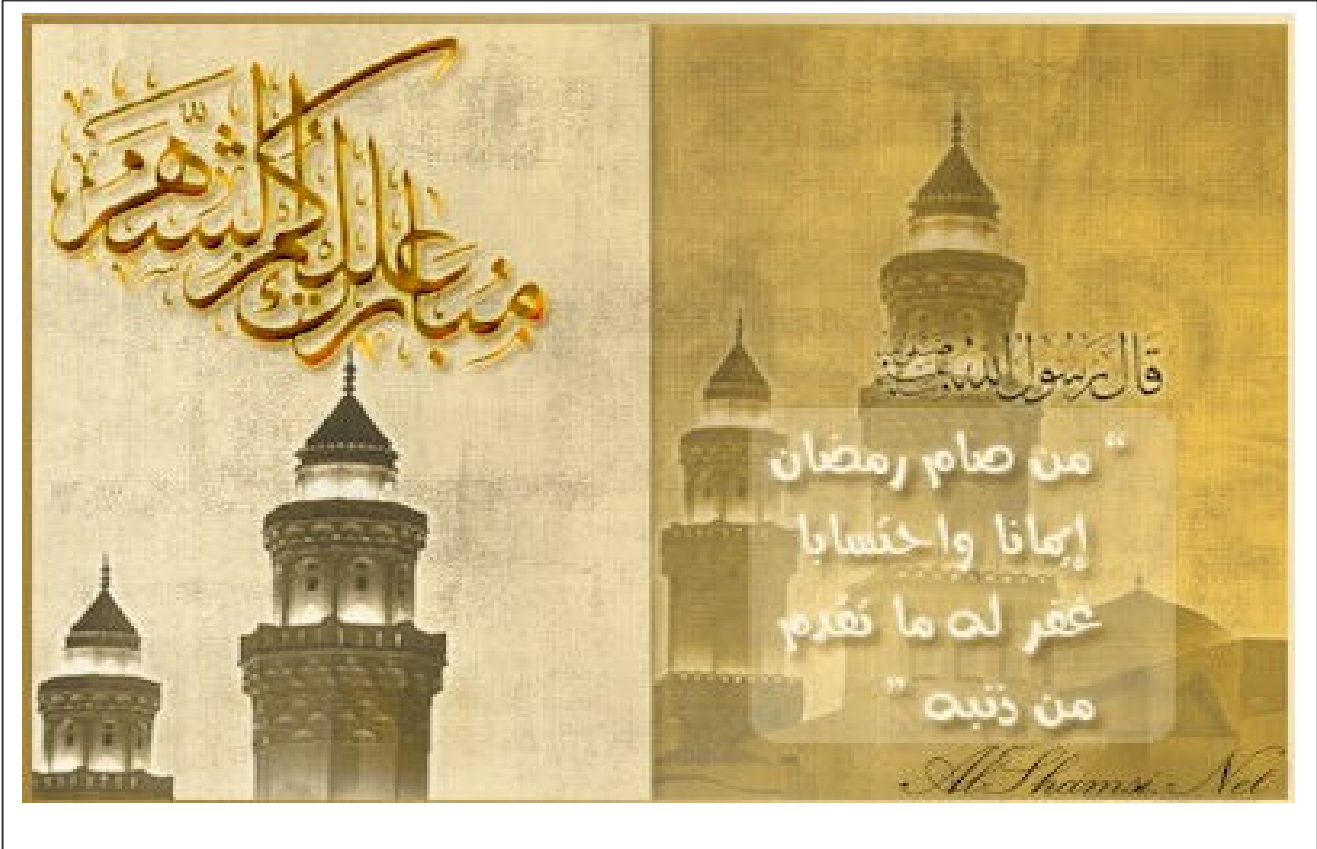 مبارك عليكم الشهر
قال رسول الله صلى الله عليه وسلم
“ من صام رمضان
إيمانا واحتسابا
غفر له ما تقدم
من ذنبه ”
AlShamsi.Net